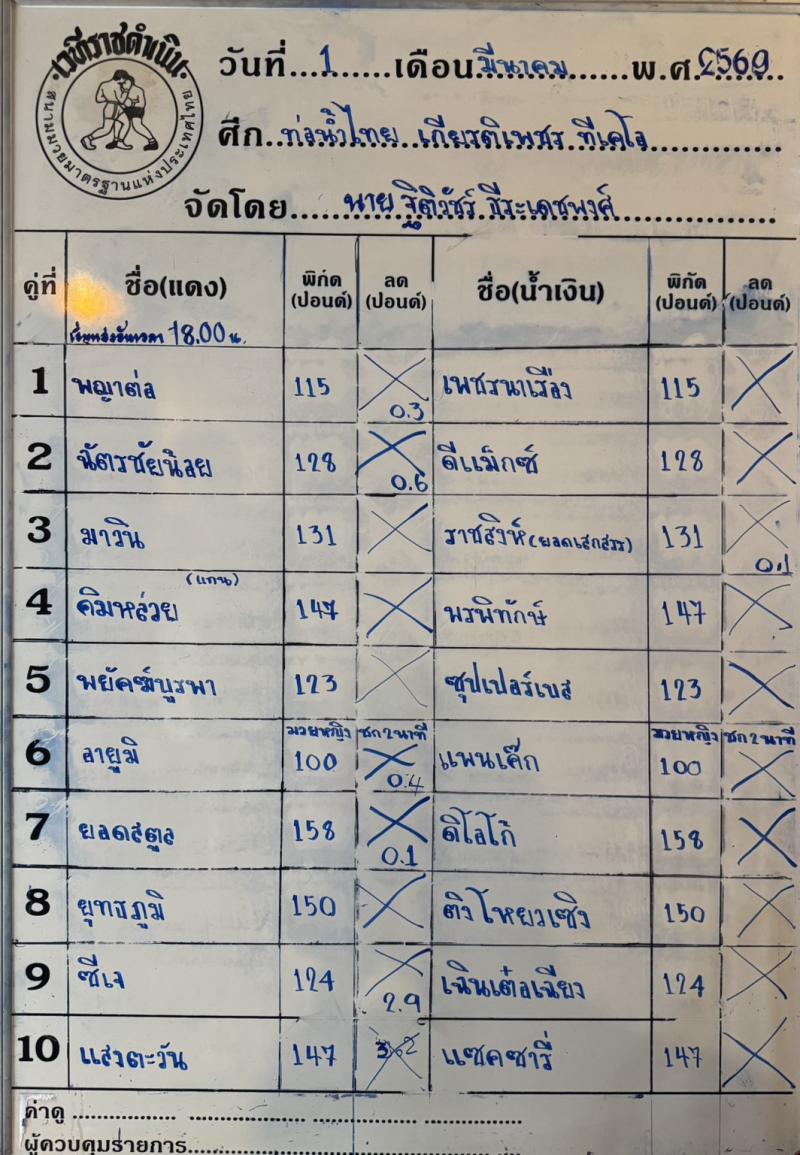 เวทีราชดำเนิน
สนามมวยมาตรฐานแห่งประเทศไทย
วันที่...1......เดือน.มีนาคม.......พ.ศ.2569
ศึก..ท่อน้ำไทย..เกียรติเพชร.ทีเคโอ
จัดโดย.....นาย ฐิติวัชร์ ธีระเดชพงศ์
คู่ที่ ชื่อ(แดง) พิกัด (ปอนด์) ลด (ปอนด์) ชื่อ(น้ำเงิน) พิกัด (ปอนด์) ลด (ปอนด์)
18.00 น.
1 พญาต่อ 115 0.3 เพชรนาเรือง 115
2 ฉัตรชัยน้อย 128 0.6 ดีแม็กซ์ 128
3 มาวิน 131 ราชสิงห์ (ยอดเสกสรร) 131 0.1
4 คิมหล่วย (แทน) 147 พรพิทักษ์ 147
5 พยัคฆ์บูรพา 123 ซุปเปอร์เบส 123
มวยหญิง ชก 2 นาที มวยหญิง ชก 2 นาที
6 อายูมิ 100 0.4 แพนเค๊ก 100
7 ยอดสตูล 158 0.1 ดิโลโก้ 158
8 ยุทธภูมิ 150 ติงโหยวเซิง 150
9 ซีเจ 124 2.9 เฉินเต๋อเฉียง 124
10 แสงตะวัน 147 แซคซารี่ 147
ค่าดู ................ .................. ................. ...............
ผู้ควบคุมรายการ